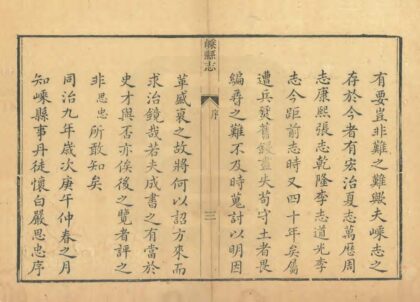 有要豈非難之難歟夫嵊志之
存於今者有宏治夏志萬厯周
志康熙張志乾隆李志道光李
志今距前志時又四十年矣屬
遭兵燹舊錄盡失苟守土者畏
編尋之難不及時蒐討以明因
嵊縣志
序
三
革盛衰之故將何以詔方來而
求治鏡哉若夫成書之有當於
史才與否亦俟後之覽者評之
非思忠所敢知矣
同治九年歲次庚午仲春之月
知嵊縣事丹徒懷白嚴思忠序